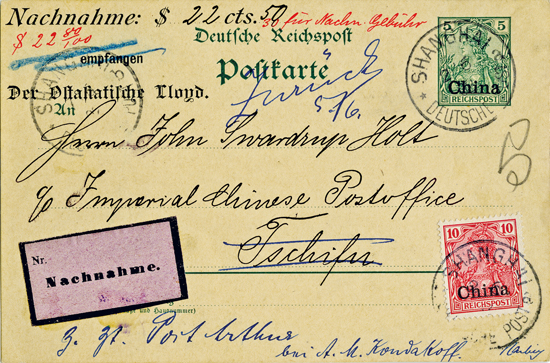 Nachnahme: $ 22 cts. 50
50 für Nachn. Gebühr
$ 22 80/100
empfangen
Deutsche Reichspost
Postkarte
Der Ostasiatische Lloyd.
Zurück
5/6.
An
Herrn John Swardrup Holt
c/o Imperial Chinese Postoffice
Tschifu
Nr.
Nachnahme.
z. Zt. Port Arthur
bei A. M. Kondakoff
5
China
REICHSPOST
SHANGHAI
DEUTSCHE
SHANGHAI
50
10 10
China
REICHSPOST
SHANGHAI